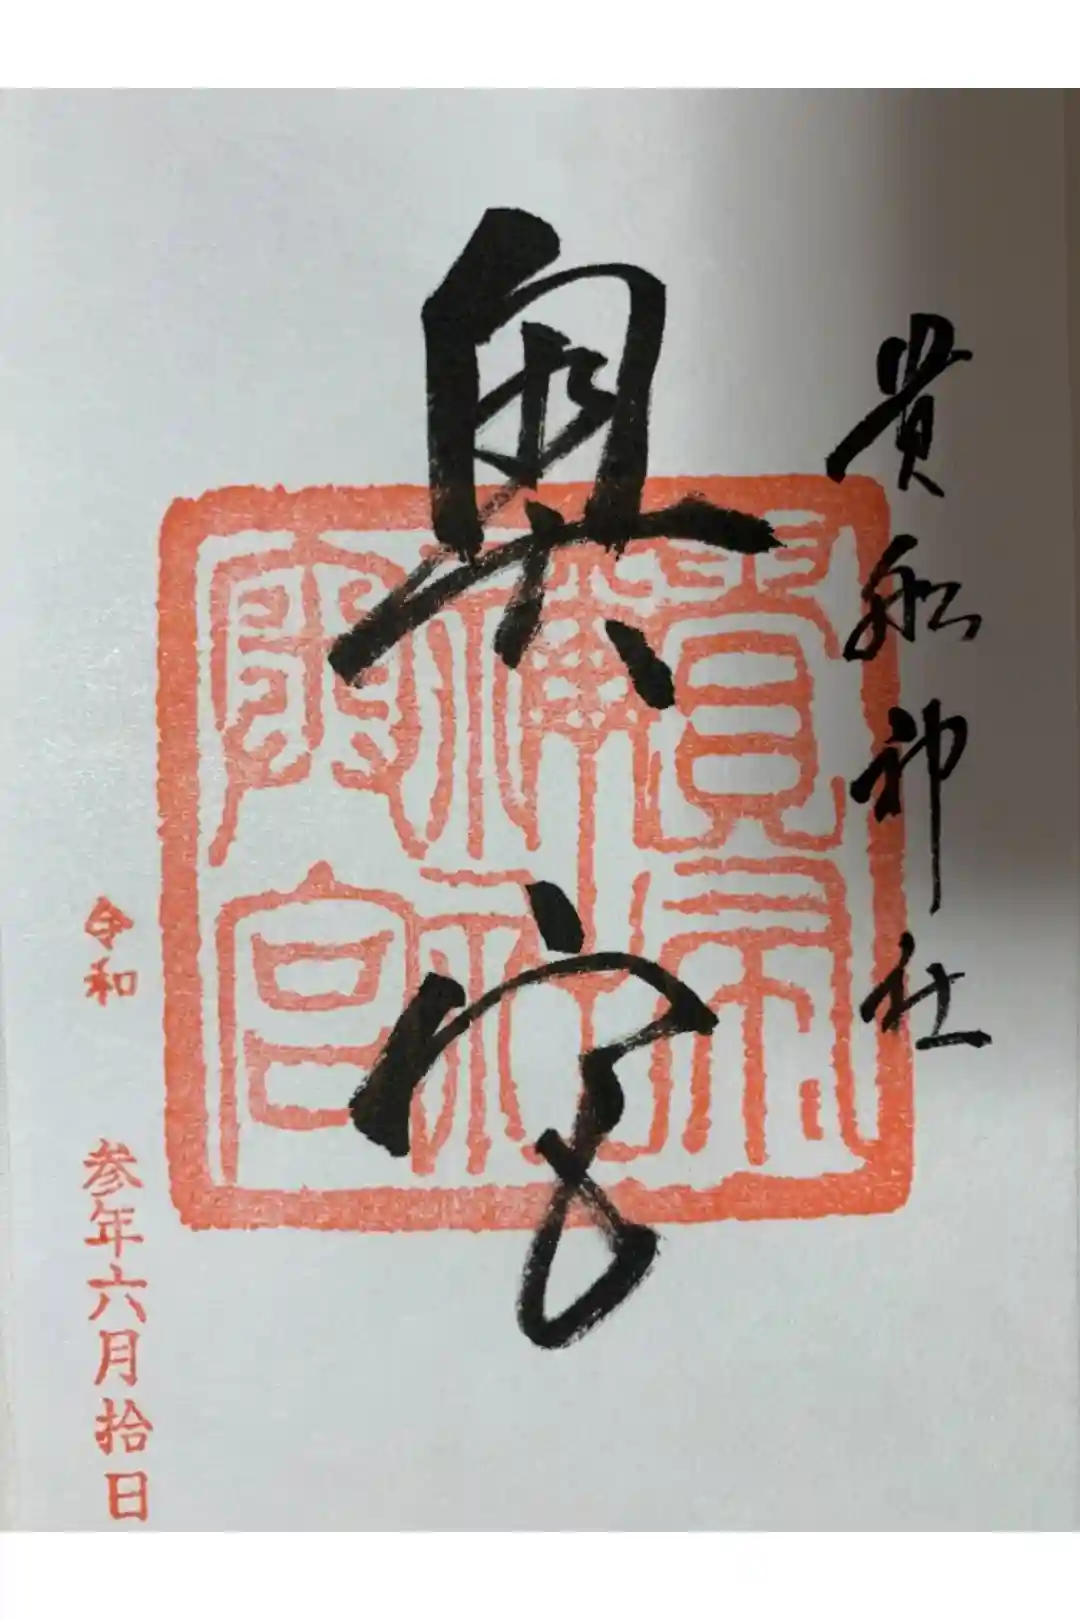 貴船神社
奥宮
貴布
禰社
奥宮
令和 参年六月拾日